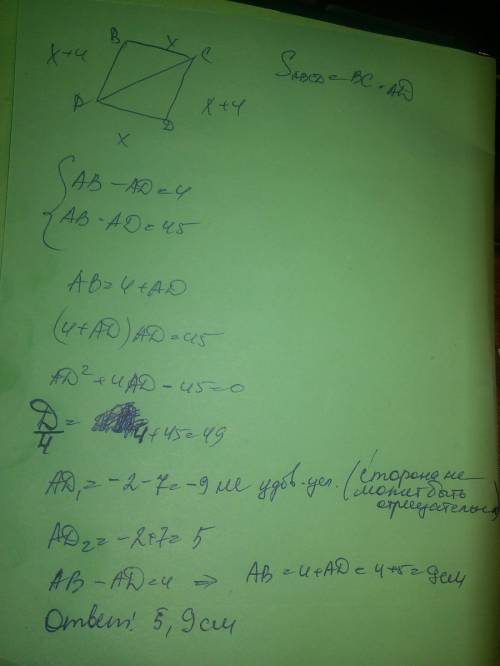 B
X
X+4
C
S ABCD = BC · AD
A
X+4
D
X
AB - AD = 4
AB · AD = 45
AB = 4 + AD
(4 + AD) AD = 45
AD² + 4AD - 45 = 0
D/4 = 4 + 45 = 49
AD₁ = -2 - 7 = -9 не удов. усл. (сторона не может быть отрицательн
AD₂ = -2 + 7 = 5
AB - AD = 4 ⇒ AB = 4 + AD = 4 + 5 = 9 см
Ответ: 5, 9 см